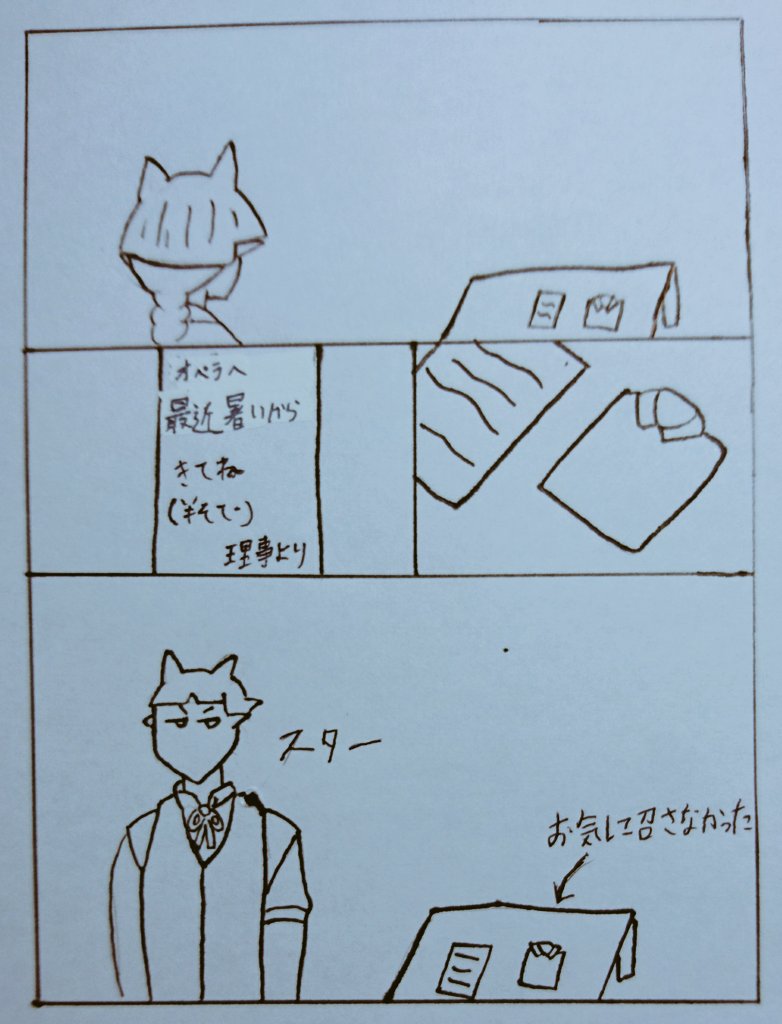 オペラへ
最近暑いから
きてね
(半そで)
理事より
スター
お気に召さなかった